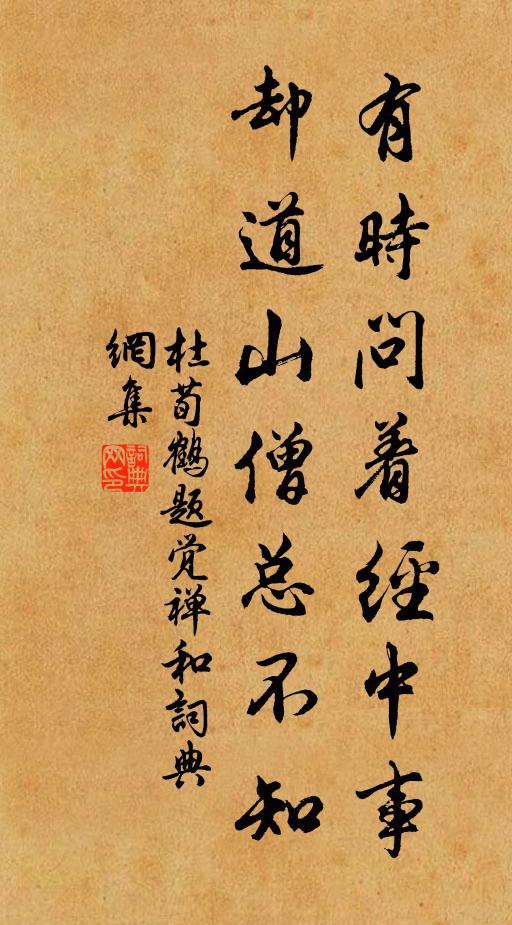 有時問着經中事
却道山僧总不知
杜荀鶴题觉禅和詞典
網集
詞典網印